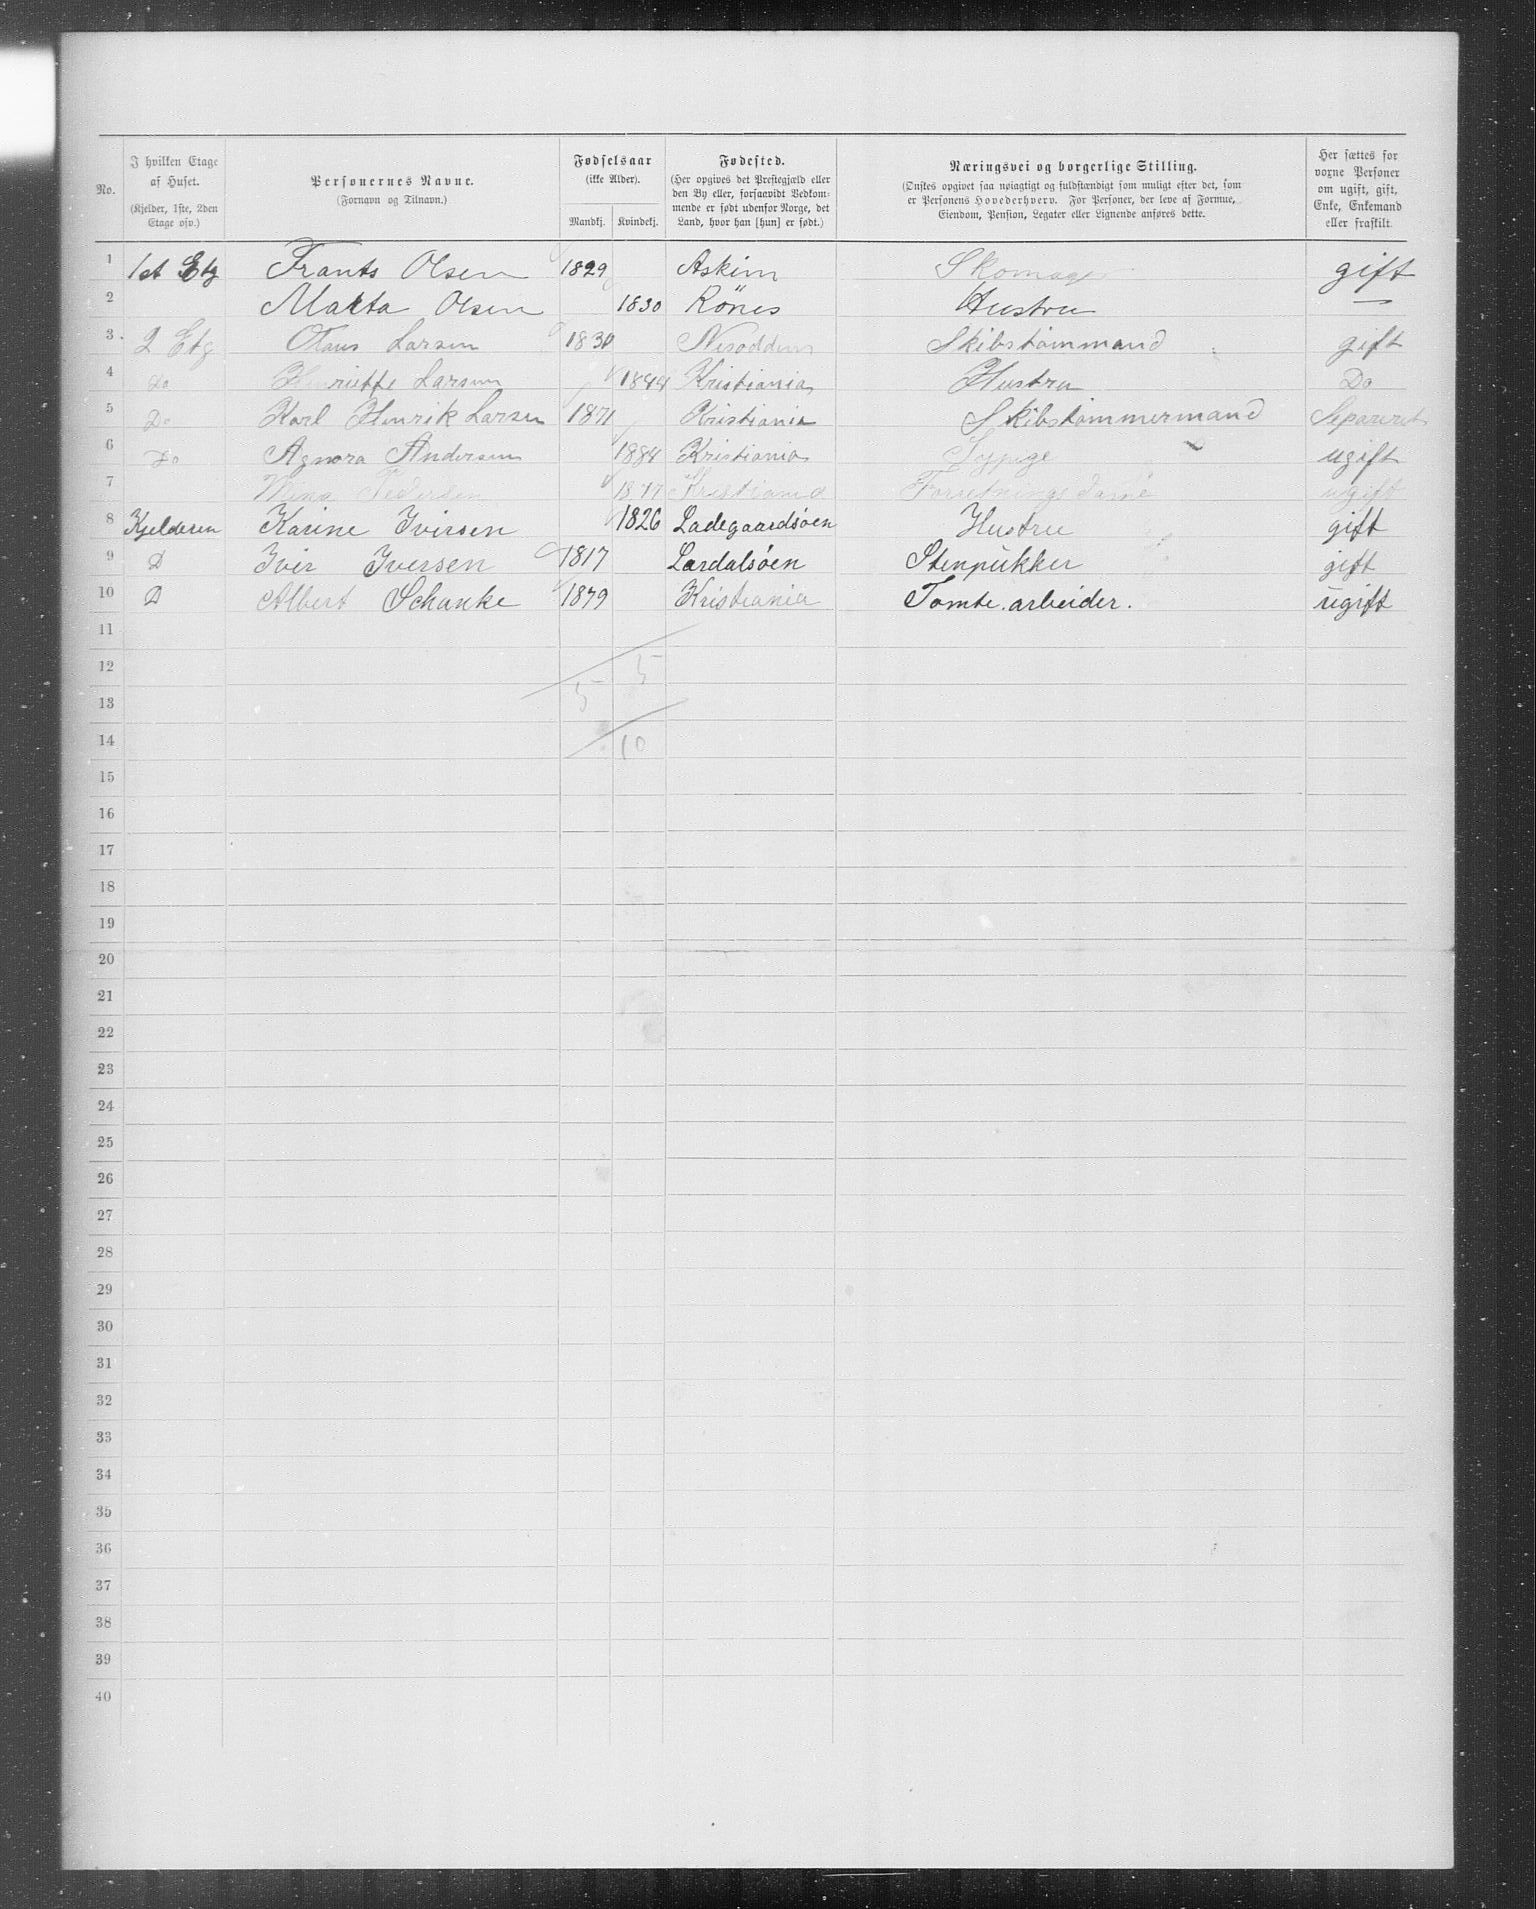 No.
I hvilken Etage af Huset.
(Kjelder, 1ste, 2den Etage osv.)
Personernes Navne.
(Fornavn og Tilnavn.)
Fødselsaar
(ikke Alder).
Mandkj. Kvindekj.
Fødested.
(Her opgives det Prestegjæld eller
den By eller, forsaavidt Vedkom-
mende er født udenfor Norge, det
Land, hvor han [hun] er født.)
Næringsvei og borgerlige Stilling.
(Ønskes opgivet saa nøiagtigt og fuldstændigt som muligt efter det, som
er Personens Hovederhverv. For Personer, der leve af Formue,
Eiendom, Pension, Legater eller Lignende anføres dette.
Her sættes for
vorne Personer
om ugift, gift,
Enke, Enkemand
eller fraskilt.
1 1st Etg Frants Olsen 1829 Askim Skomager gift
2 Marta Olsen 1830 Rönes Hustru —
3 2 Etg Olaus Larsen 1830 Nesodden Skibstømmand gift
4 Do Henriette Larsen 1844 Kristiania Hustru Do
5 Do Karl Henrik Larsen 1871 Kristiania Skibstømmermand Separeret
6 Do Agnora Andersen 1884 Kristiania Sypige ugift
7 Mina Pedersen 1877 Kristiania Forretnings dame ugift
8 Kjelderen Karine Ivirsen 1826 Ladegaardsøen Hustru gift
9 D Ivir Iversen 1817 Lardalsöen Stenpükker gift
10 D Albert Schanke 1879 Kristiania Tomte.arbeider. ügift
11
12 5
13 5
14 10
15
16
17
18
19
20
21
22
23
24
25
26
27
28
29
30
31
32
33
34
35
36
37
38
39
40